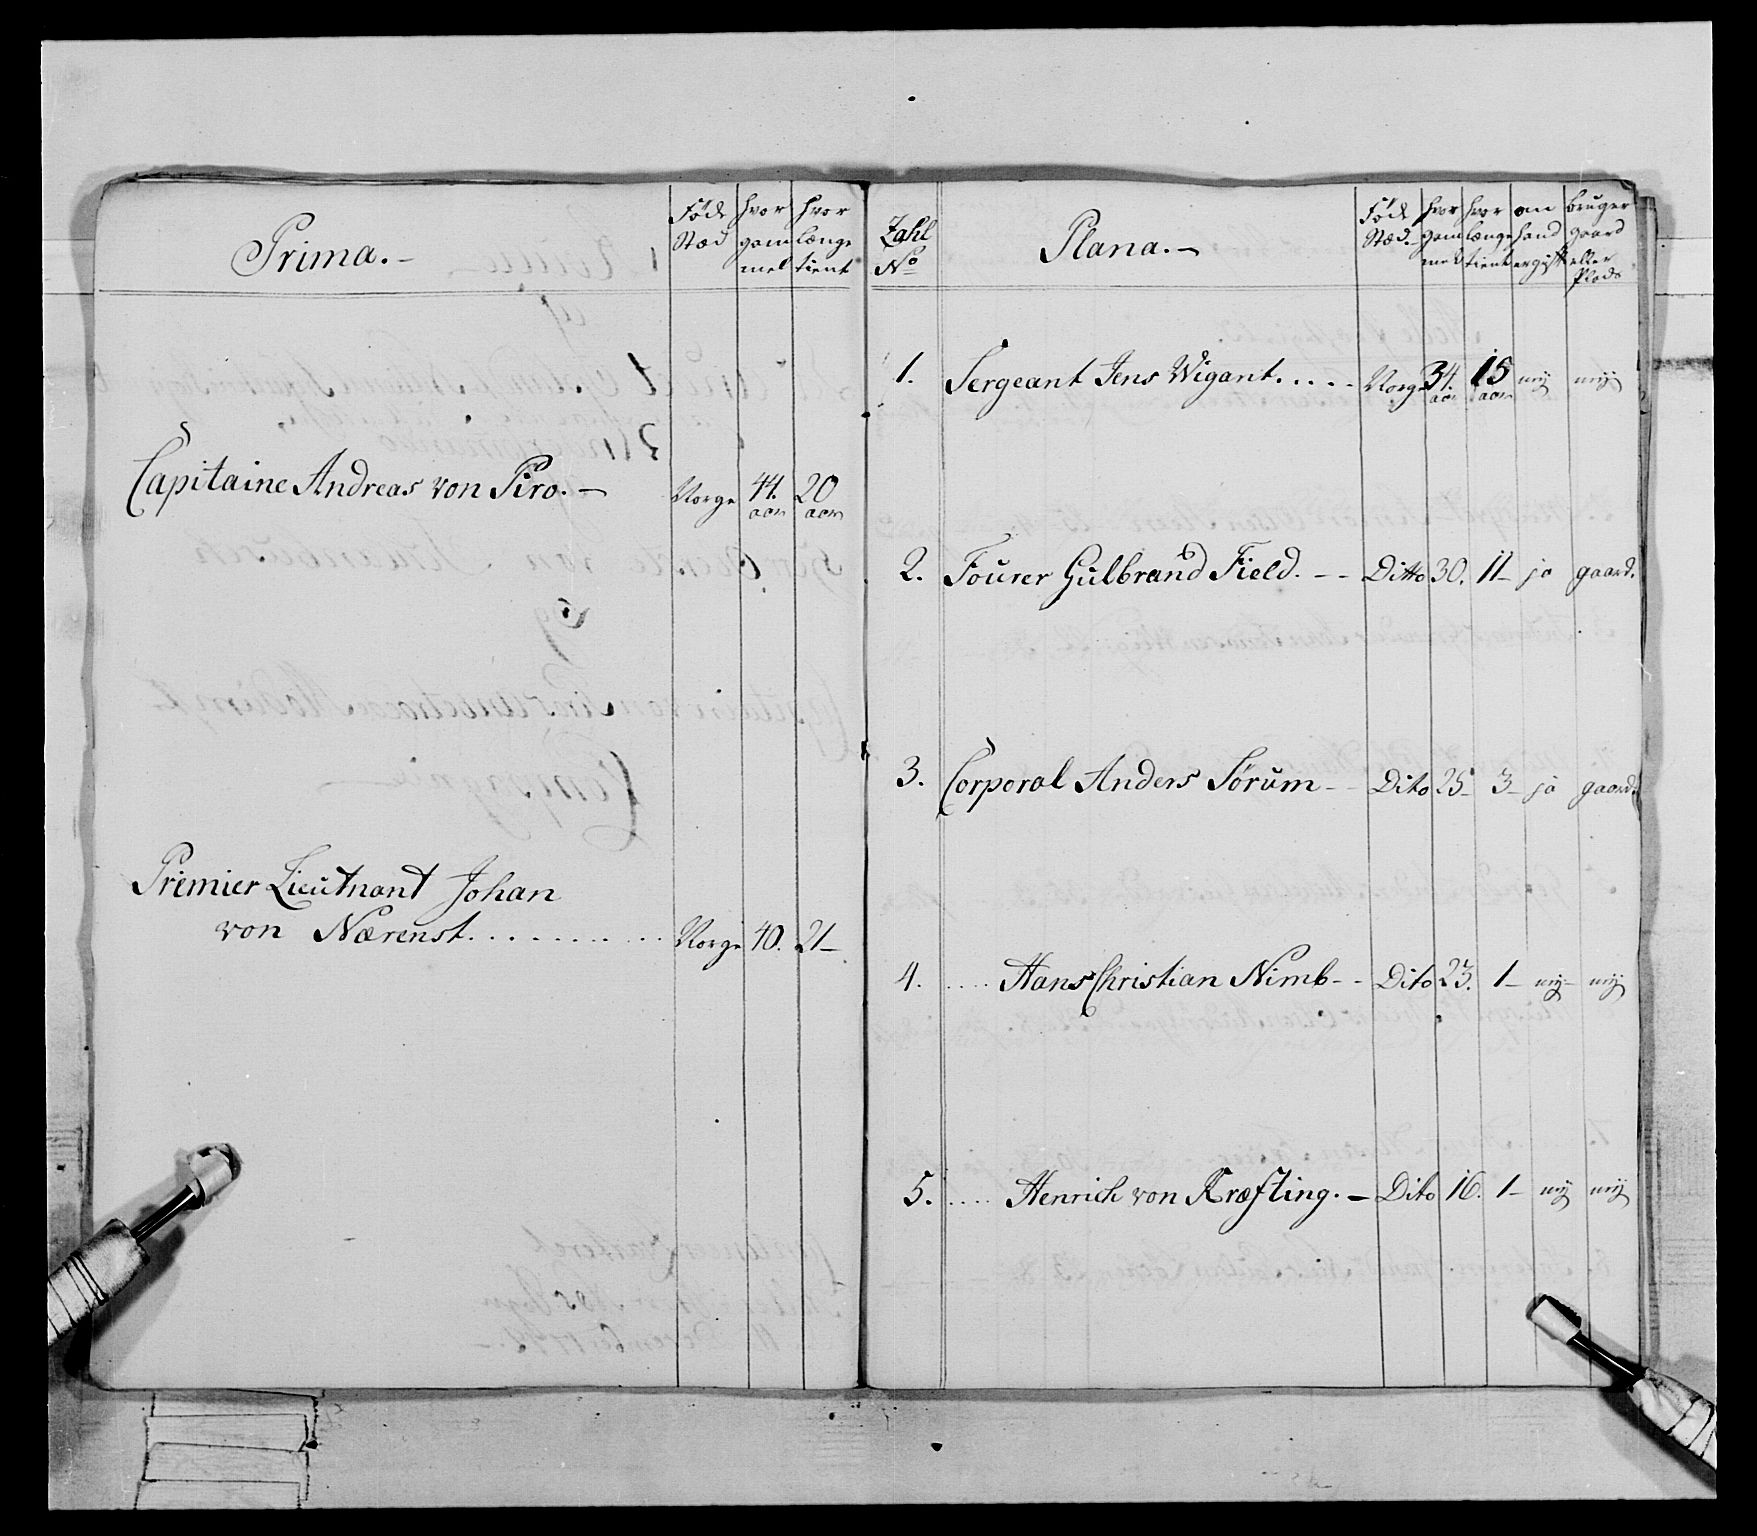 Prima.-
Føde Stæd
hvor gammel
hvor længe tient
Capitaine Andreas von Piro. - Norge 44. aar 20 aar
Premier Lieutnant Johan
von Nærenst............ Norge 40. 21-
Zahl No
Plana.-
Føde Stæd.
hvor gammel
hvor længe tient
om hand er gift
bruger gaard eller Plads
1. Sergeant Jens Wigant..... Norge 34. aar 15 aar nij nij
2. Fourer Gulbrand Field. - - Ditto 30. 11- ja gaard.
3. Corporal Anders Sørum - - Dito 25- 3- ja gaard.
4. .... Hans Christian Nimb - - Dito 23. 1- nij- nij
5. .... Henrich von Kræfting. - Dito 16. 1- nij nij